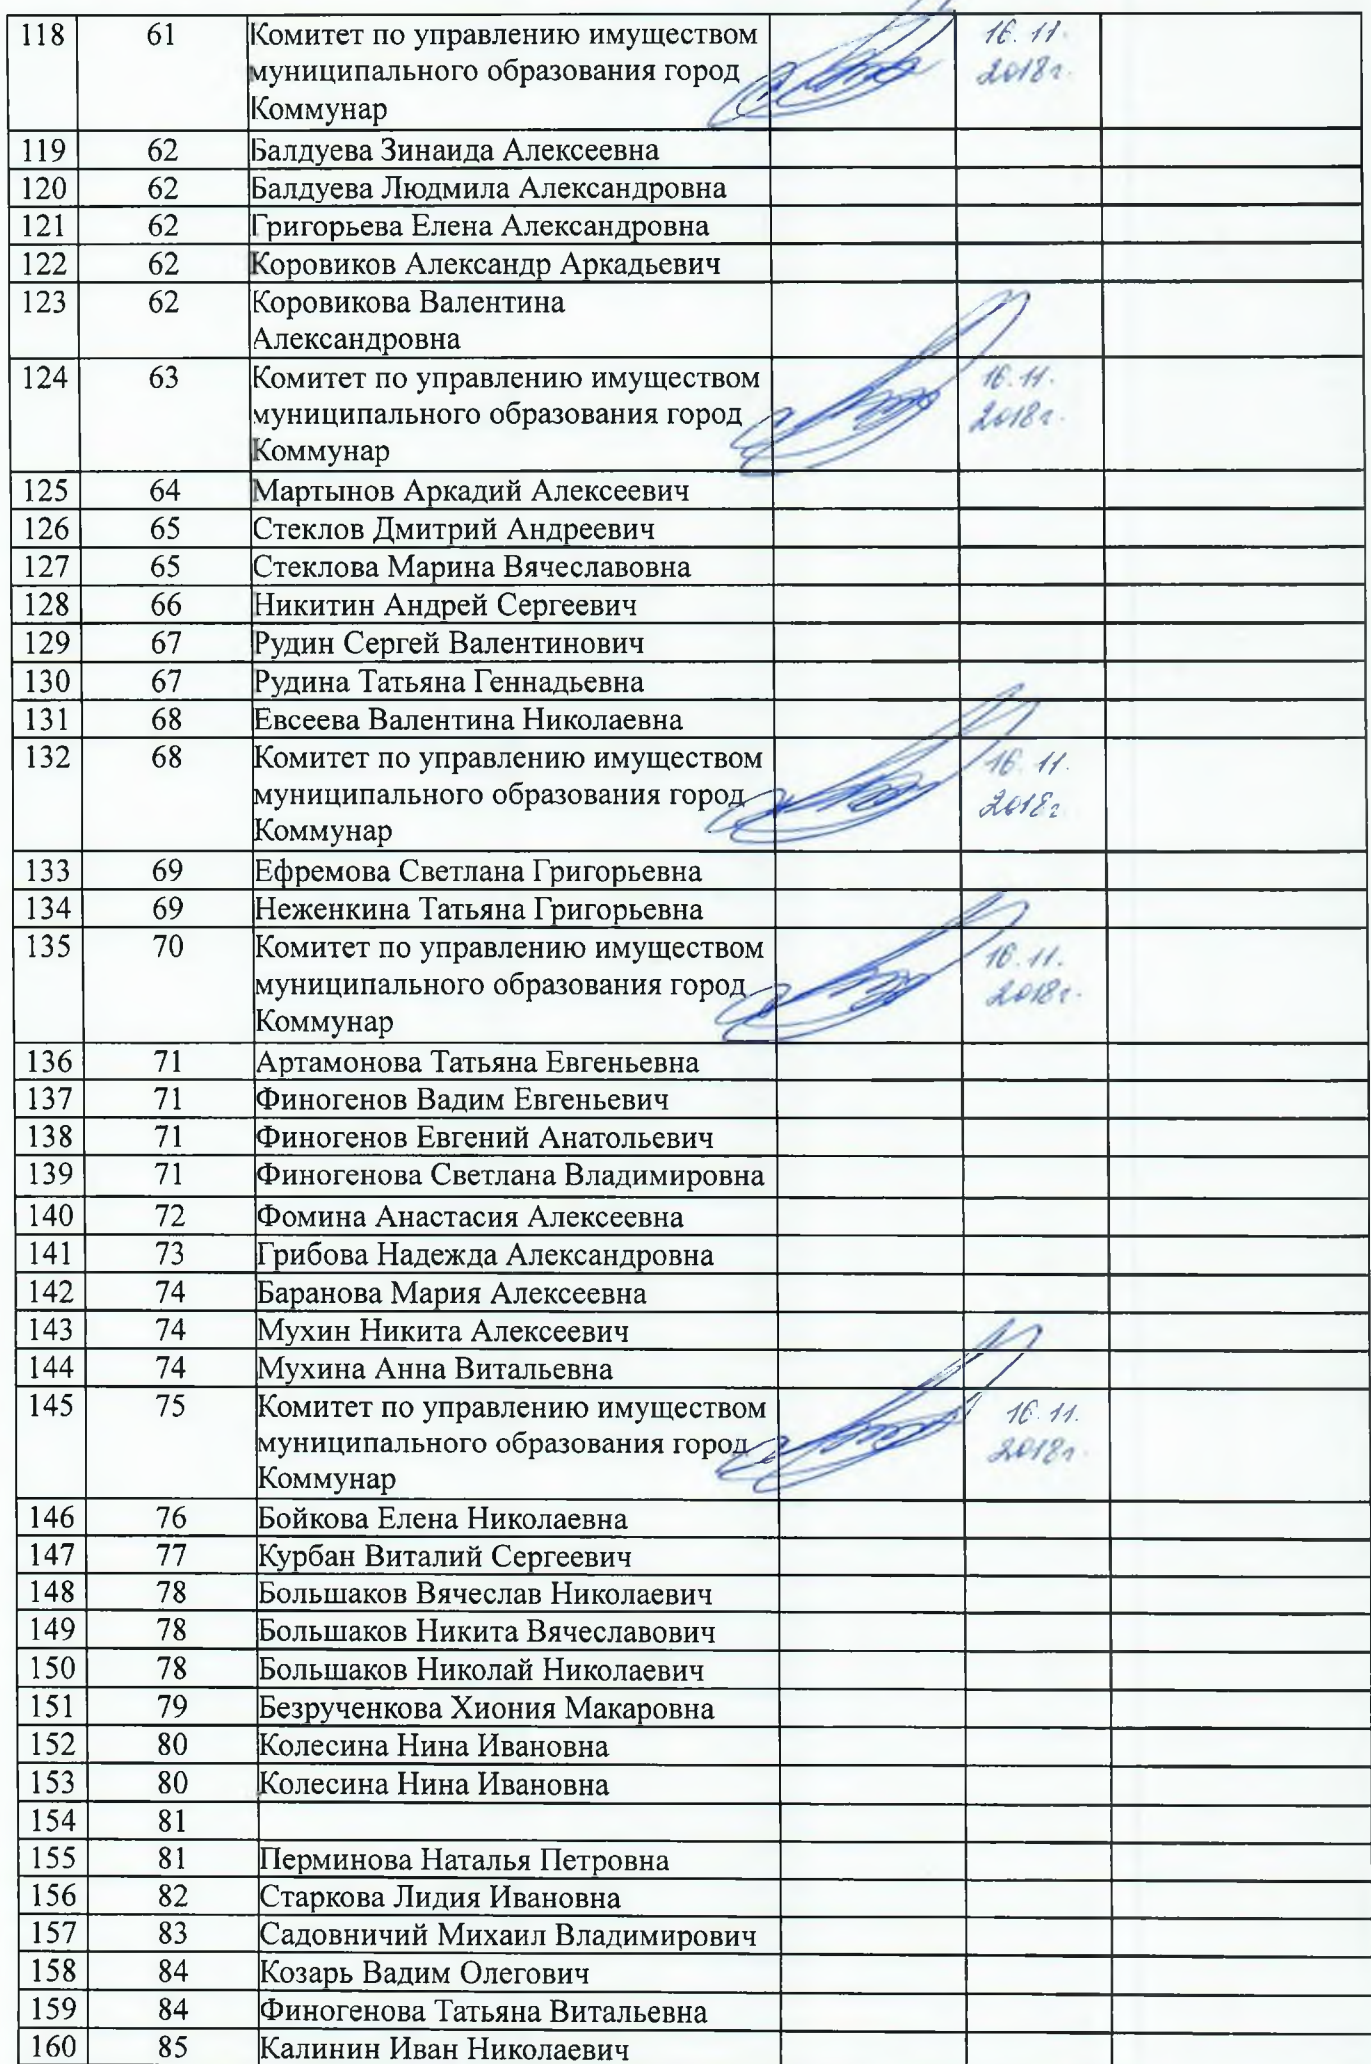 118 61 Комитет по управлению имуществом 16.11.
муниципального образования город 2018г.
Коммунар
119 62 Балдуева Зинаида Алексеевна
120 62 Балдуева Людмила Александровна
121 62 Григорьева Елена Александровна
122 62 Коровиков Александр Аркадьевич
123 62 Коровикова Валентина
Александровна
124 63 Комитет по управлению имуществом 16.11.
муниципального образования город 2018г.
Коммунар
125 64 Мартынов Аркадий Алексеевич
126 65 Стеклов Дмитрий Андреевич
127 65 Стеклова Марина Вячеславовна
128 66 Никитин Андрей Сергеевич
129 67 Рудин Сергей Валентинович
130 67 Рудина Татьяна Геннадьевна
131 68 Евсеева Валентина Николаевна
132 68 Комитет по управлению имуществом 16.11.
муниципального образования город 2018г
Коммунар
133 69 Ефремова Светлана Григорьевна
134 69 Неженкина Татьяна Григорьевна
135 70 Комитет по управлению имуществом 16.11.
муниципального образования город 2018г.
Коммунар
136 71 Артамонова Татьяна Евгеньевна
137 71 Финогенов Вадим Евгеньевич
138 71 Финогенов Евгений Анатольевич
139 71 Финогенова Светлана Владимировна
140 72 Фомина Анастасия Алексеевна
141 73 Грибова Надежда Александровна
142 74 Баранова Мария Алексеевна
143 74 Мухин Никита Алексеевич
144 74 Мухина Анна Витальевна
145 75 Комитет по управлению имуществом 16.11.
муниципального образования город 2018г
Коммунар
146 76 Бойкова Елена Николаевна
147 77 Курбан Виталий Сергеевич
148 78 Большаков Вячеслав Николаевич
149 78 Большаков Никита Вячеславович
150 78 Большаков Николай Николаевич
151 79 Безрученкова Хиония Макаровна
152 80 Колесина Нина Ивановна
153 80 Колесина Нина Ивановна
154 81
155 81 Перминова Наталья Петровна
156 82 Старкова Лидия Ивановна
157 83 Садовничий Михаил Владимирович
158 84 Козарь Вадим Олегович
159 84 Финогенова Татьяна Витальевна
160 85 Калинин Иван Николаевич